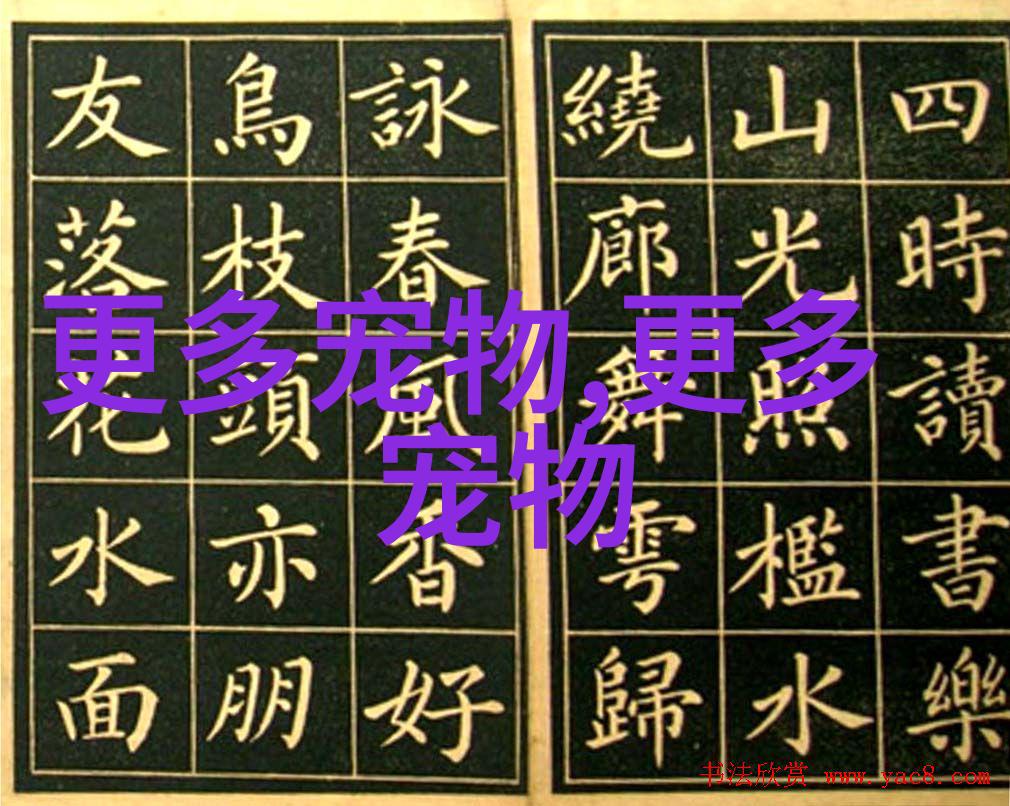 四時讀書樂
山光照檻水
繞廊舞雩歸
詠春風香好
鳥枝頭亦朋
友落花水面
更多宠物,更多
宠物
书法欣赏 www.yac8.com